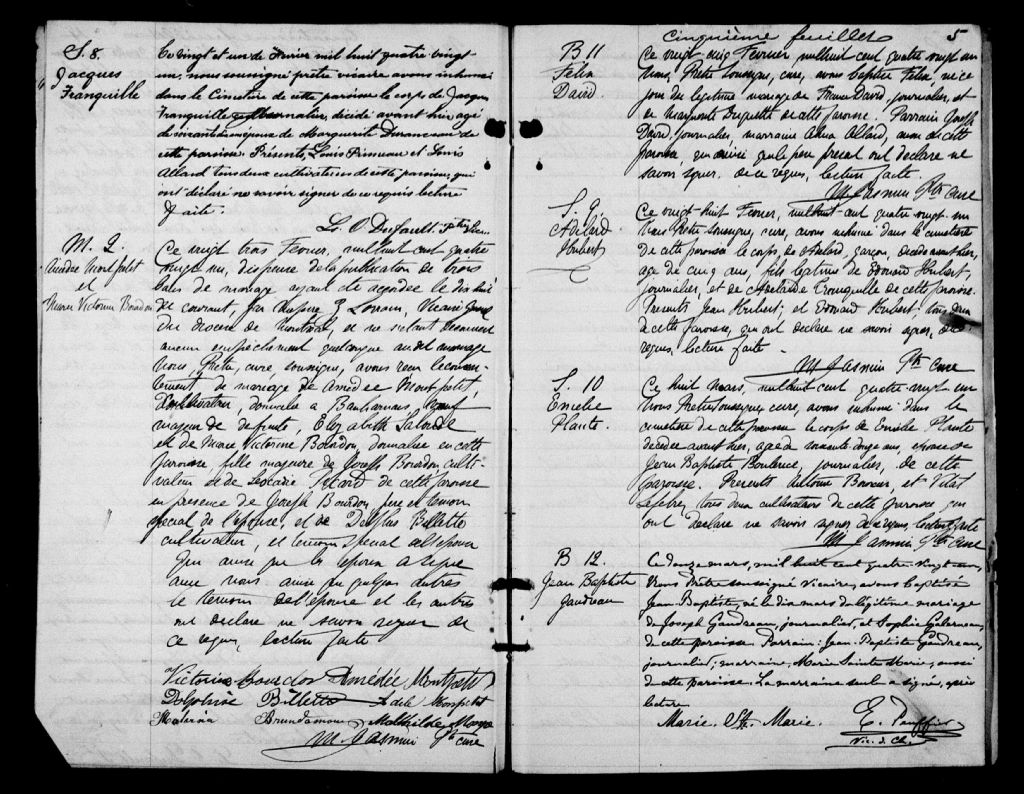 S. 8.
Jacques
Tranquille
Ce vingt et un de Février mil huit quatre vingt
un, nous soussigné prêtre vicaire avons inhumé
dans le Cimetière de cette paroisse le corps de Jacques
Tranquille décédé avant hier, agé
de soixante ans époux de Marguerite Duranceau de
cette paroisse. Présents, Louis Primeau et Louis
Allard tous deux cultivateurs de cette paroisse, qui
ont déclaré ne savoir signer de ce requis lecture
faite.
L. O. Dufault Ptre
M. 2.
Amédée Montpetit
et
Marie Victorine Bourdon
Ce vingt trois Fevrier, mil huit cent quatre
vingt un, dispense de la publication de trois
bans de mariage ayant été accordée le dix huit
du courant, par Messire L. Lorrain, Vicaire Général
du diocese de Montréal, et ne s'etant decouvert
aucun empêchement quelconque au dit mariage
Nous, Prêtre, curé, soussigné, avons reçu le consen-
tement de mariage de Amédée Montpetit,
cultivateur, domicilié a Beauharnois, veuf
majeur de defunte, Elizabeth
et de Marie Victorine Bourdon, domiciliée en cette
paroisse, fille majeure de Joseph Bourdon culti-
vateur et de Léocadie Picard de cette paroisse
en presence de Joseph Bourdon, pere et temoin
special de l'épouse, et de Delphis Billette
cultivateur, et temoin special de l'epoux
Qui ainsi que les epoux a signé
avec nous ainsi que quelques autres
le temoin de l'epouse et les autres
ont declare ne savoir signer de
ce requis, lecture faite
Victorine Bourdon Amédée Montpetit
Delphise Billette Adele Montpetit
Malvina Mathilde
M Jasmin Ptre cure
cinquième feuillet 5
B 11
Félix
David
Ce vingt cinq Fevrier mil huit cent quatre vingt un
Nous, Prêtre soussigné, curé, avons baptisé Félix, né ce
jour du legitime mariage de David, journalier, et
de Marguerite Duquette de cette paroisse. Parrain Joseph
David, journalier, marraine Alma Allard, aussi de cette
paroisse, qui ainsi que le pere present ont declare ne
savoir signer. de ce requis, lecture faite.
M Jasmin Ptre cure
S. 9
Adélard
Houbert
Ce vingt huit Fevrier, mil huit cent quatre vingt un
Nous Pretre soussigné, cure, avons inhumé dans le cimetiere
de cette paroisse le corps, de Adelard, garçon, decede avant hier,
age de cinq ans, fils legitime de Edouard Houbert,
journalier, et de Adelaide Tranquille de cette paroisse.
Presents Jean Houbert, et Edouard Houbert tous deux
de cette paroisse, qui ont declare ne savoir signer, de ce
requis, lecture faite.
M Jasmin Ptre cure
S. 10
Emelie
Plante.
Ce huit Mars, mil huit cent quatre vingt un
Nous Pretre soussigné, cure, avons inhumé dans le
cimetiere de cette paroisse le corps de Emelie Plante
decedee avant hier, agée de ans, epouse de
Jean Baptiste, journalier, de cette
paroisse. Presents Antoine, et Vital
Lefebvre, tous deux cultivateurs de cette paroisse qui
ont declare ne savoir signer de ce requis, lecture faite
M Jasmin Ptre cure
B 12.
Jean Baptiste
Gaudreau
Ce douze mars, mil huit cent quatre vingt un,
Nous Prêtre soussigné Vicaire, avons baptisé
Jean Baptiste, né le dix mars du légitime mariage
de Joseph Gaudreau, journalier, et Sophie Galarneau
de cette paroisse Parrain: Jean Baptiste Gaudreau,
journalier, marraine, Marie Sainte Marie, aussi
de cette paroisse. La marraine seule a signé, après
lecture
Marie. Ste. Marie.
Vic. d. Ch.